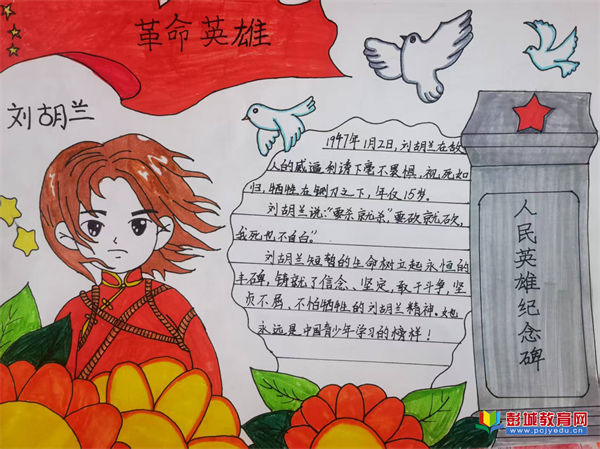 革命英雄
刘胡兰
1947年1月2日,刘胡兰在敌
人的威逼利诱下毫不畏惧,视死如
归,牺牲在铡刀之下,年仅15岁。
刘胡兰说:"要杀就杀,要砍就砍,
我死也不自白"。
刘胡兰短暂的生命树立起永恒的
丰碑,铸就了信念、坚定、敢于斗争、坚
贞不屈、不怕牺牲的刘胡兰精神。她
永远是中国青少年学习的榜样!
人民英雄纪念碑
彭城教育网
www.pcjyedu.cn